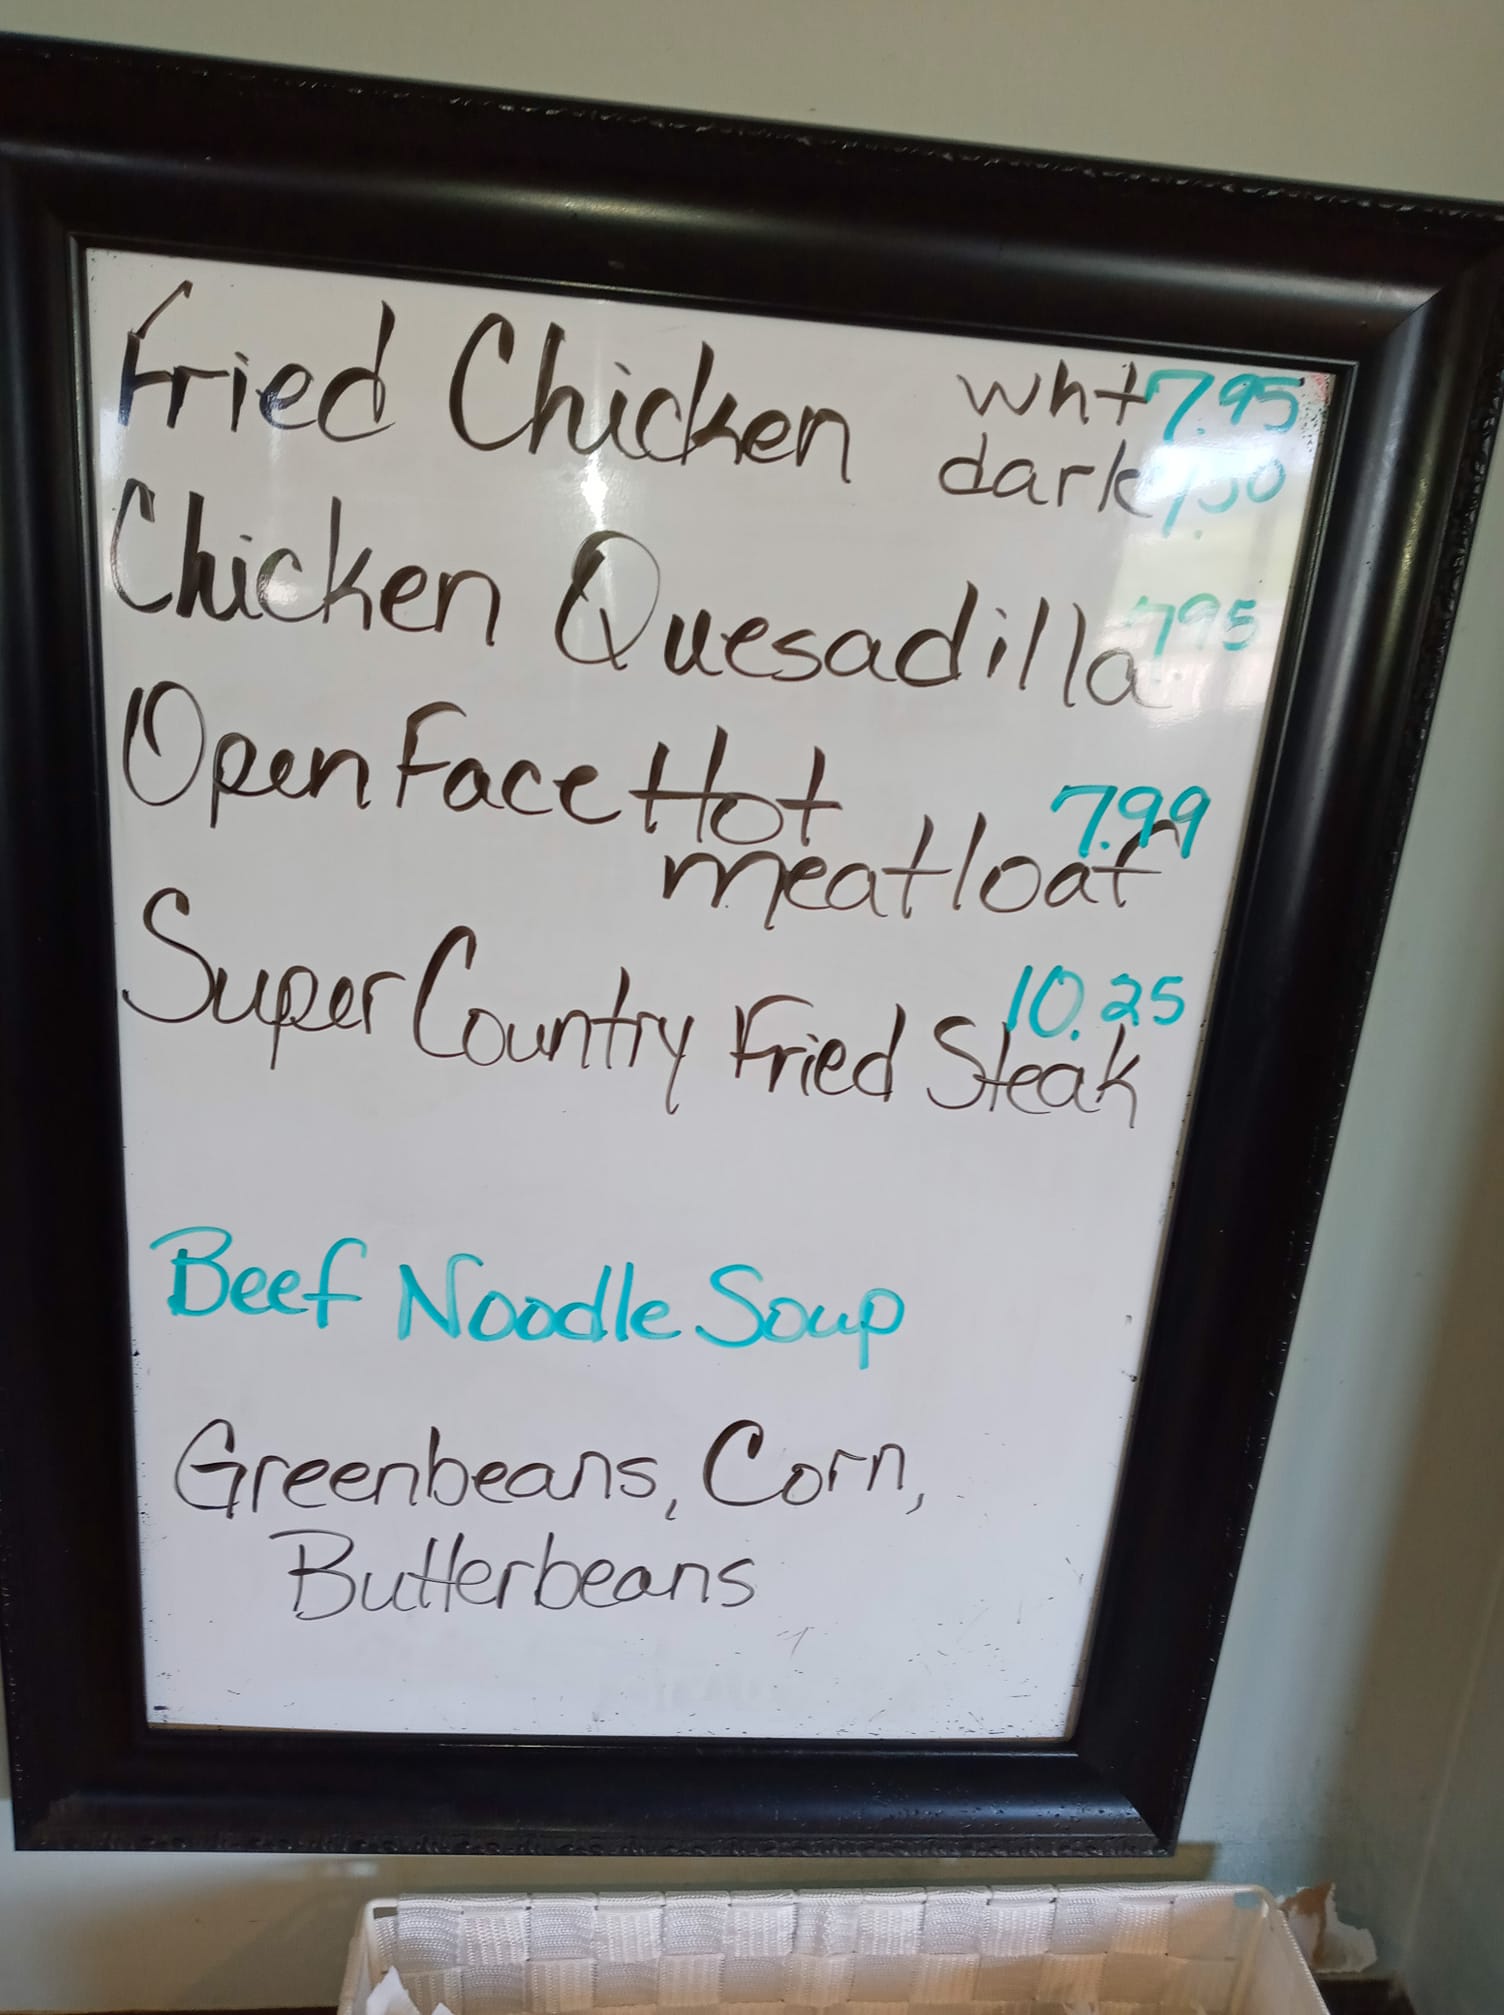 Fried Chicken wht 7.95
dark 7.50
Chicken Quesadilla 7.95
Open Face Hot 7.99
meatloaf
Super Country Fried Steak 10.25
Beef Noodle Soup
Greenbeans, Corn,
Butterbeans